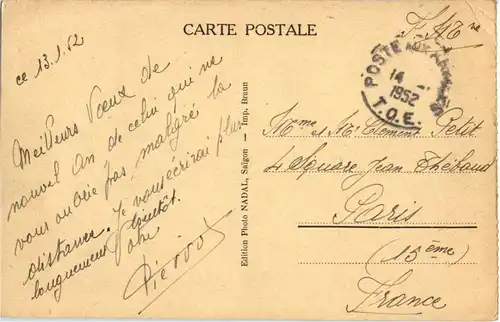 CARTE POSTALE
F. M. Tne
ce 13.1.52
Meilleurs Voeux de
nouvel An de celui qui ne
vous oublie pas, malgré la
distance. Je vous écrirai plus
longuement bientôt.
Votre
POSTE AUX ARMEES
14 - 1
1952
T.O.E.
Edition Photo NADAL, Saïgon — Imp. Braun
Mme & Mr Clement Petit
4 Square Jean Thébaud
Paris
(15ème)
France